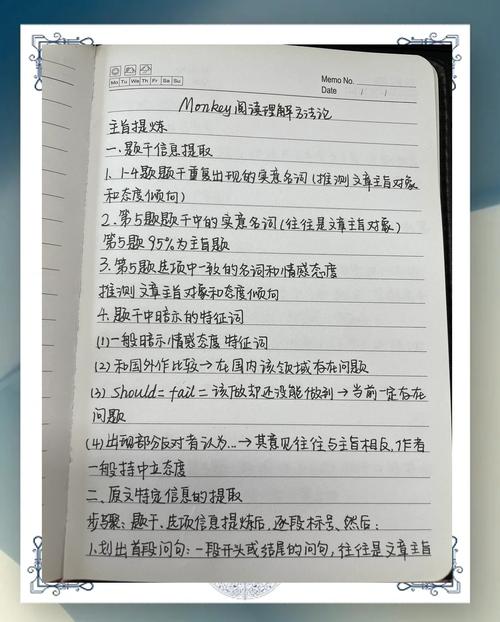 Mo Tu We Th Fr Sa Su
Memo No.
Date / /
Monkey阅读理解方法论
主旨提炼
一、题干信息提取
1、1-4题题干重复出现的实意名词(推测文章主旨对象
和态度倾向)
2、第5题题干中的实意名词(往往是文章主旨对象)
第5题95%为主旨题
3、第5题选项中一致的名词和情感态度
推测文章主旨对象和态度倾向
4、题干中暗示的特征词
(1)一般暗示情感态度特征词
(2)和国外作比较→在国内该领域存在问题
(3) should = fail = 该做却还没能做到→当前一定存在
问题
(4)出现部分反对者认为...→其意见往往与主旨相反,作者
一般持中立态度
二、原文特定信息的提取
步骤:题干、选项信息提炼后,逐段标号、然后:
1、划出首段问句:一段开头或结尾的问句,往往是文章主旨